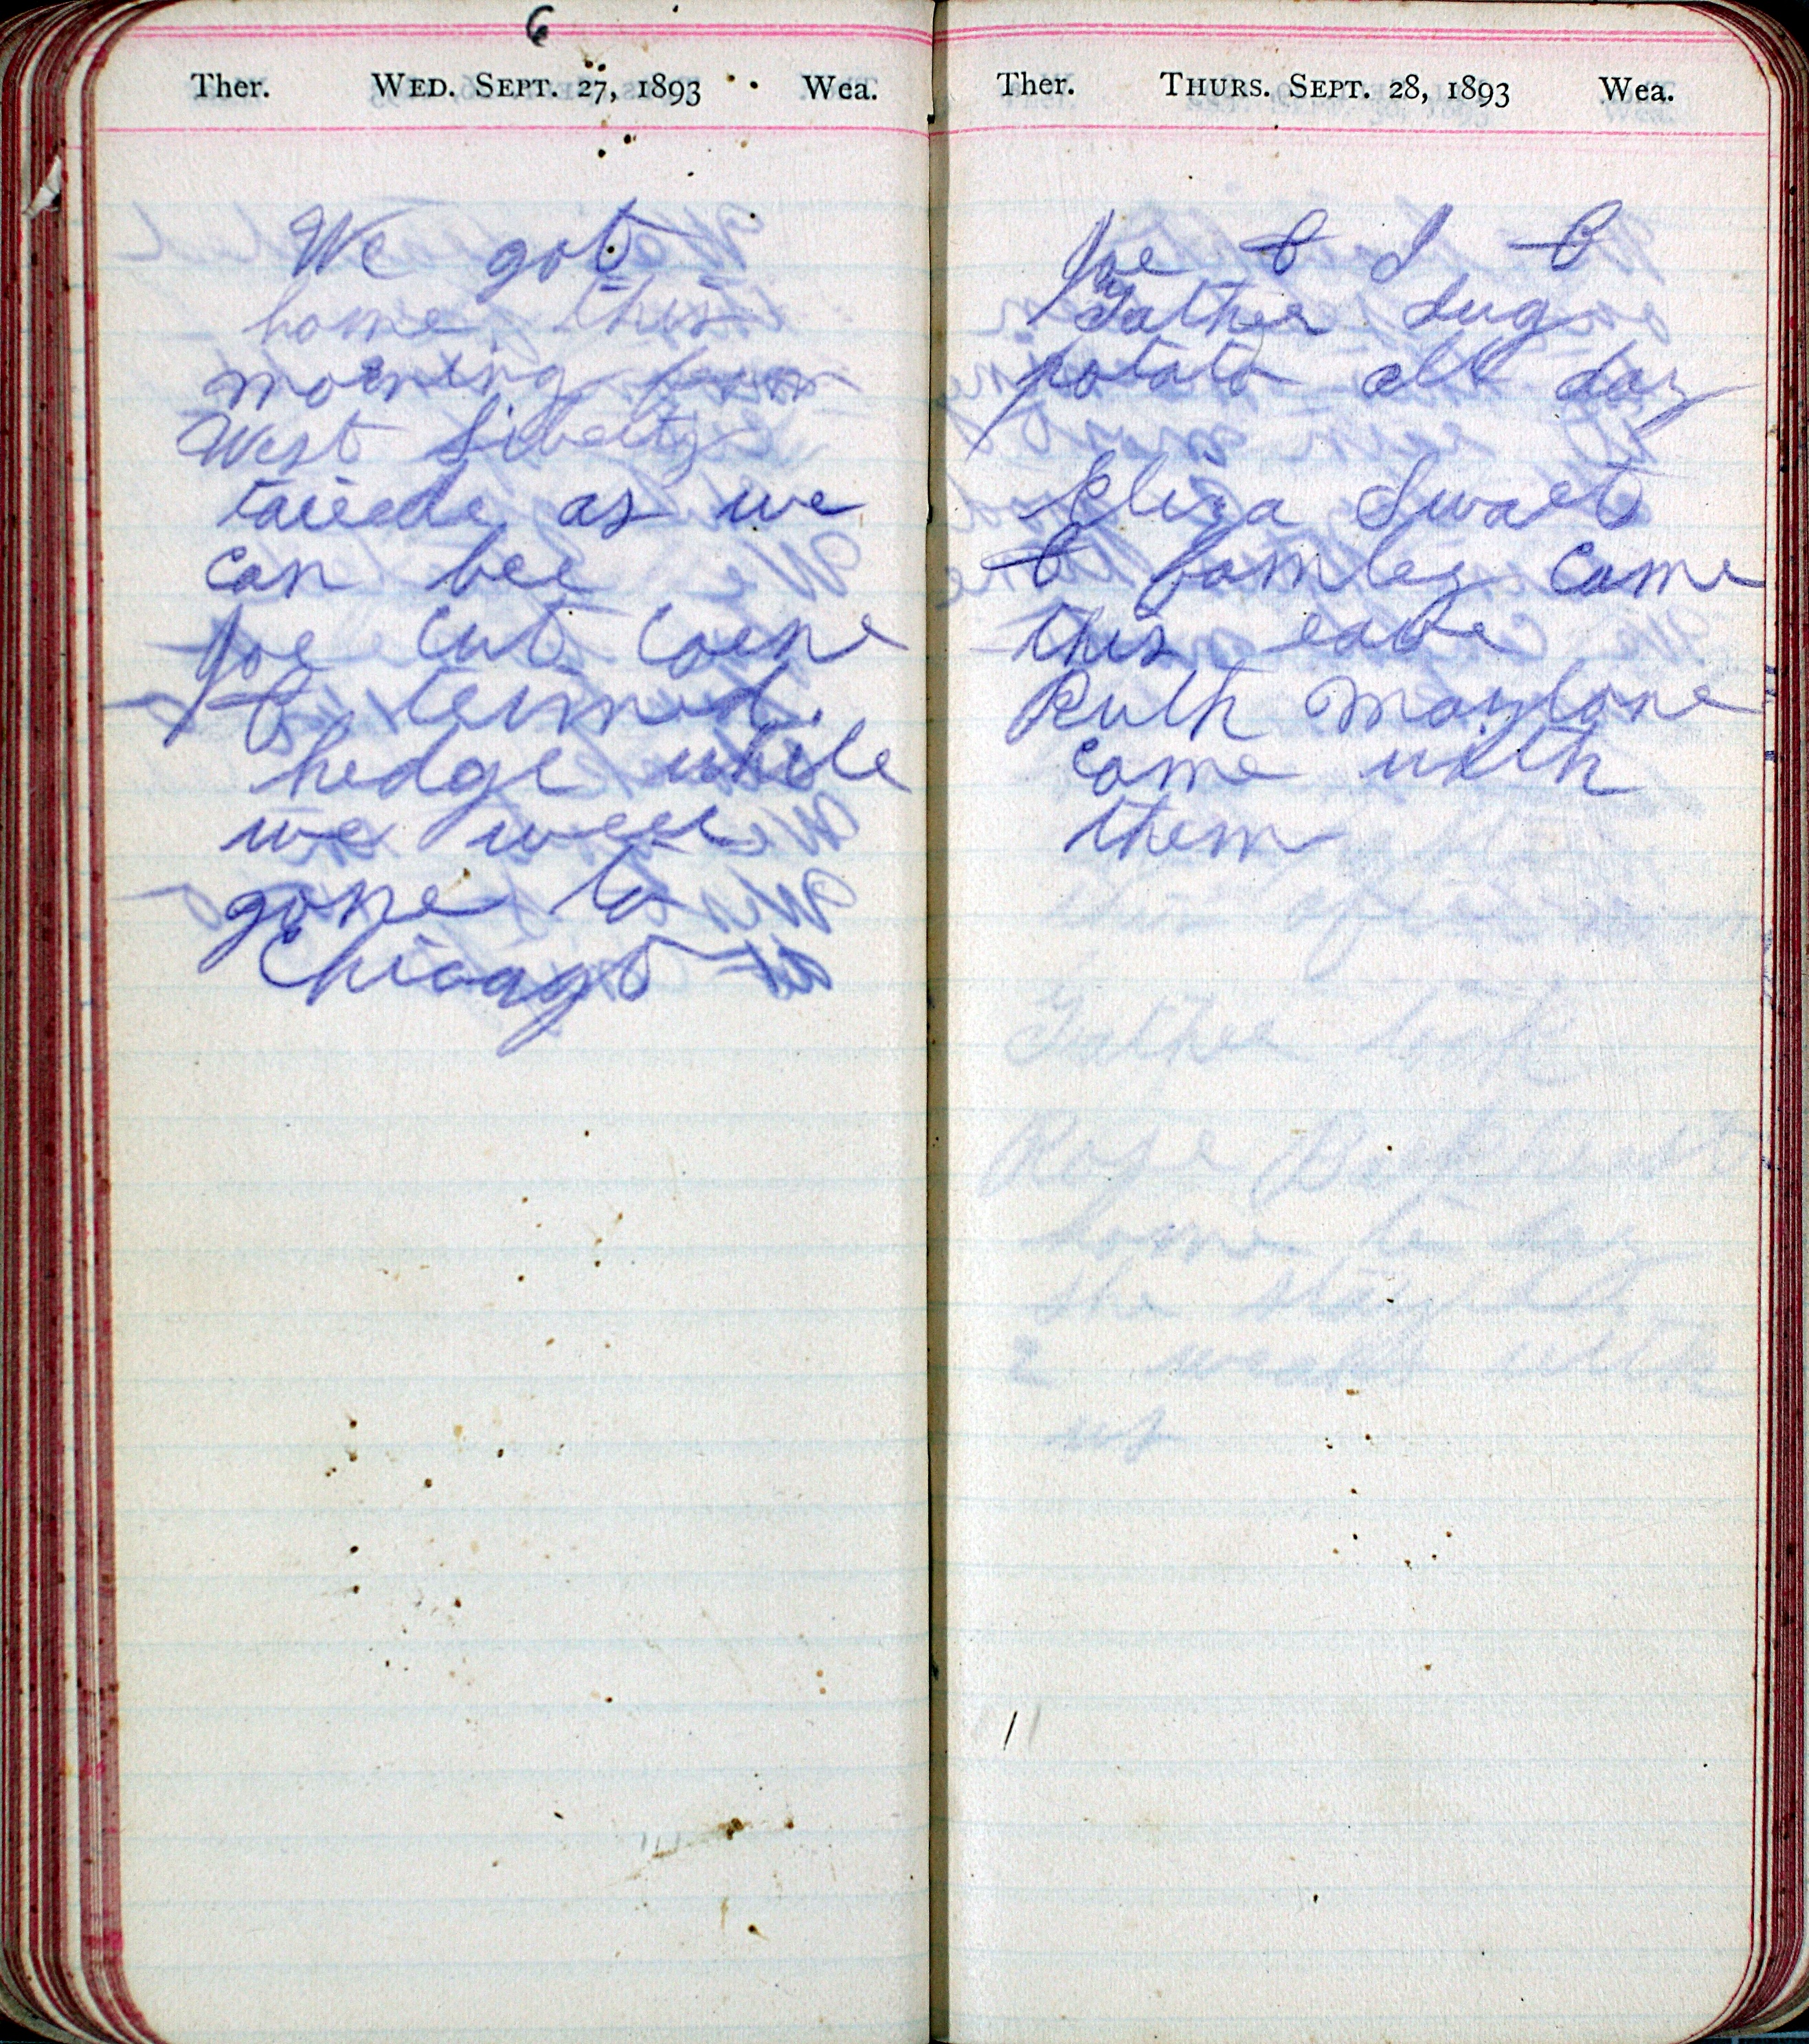 6
Ther. WED. SEPT. 27, 1893 Wea.
We got
home this
morning from
West Liberty
tairede as we
can bee
Joe cut corne
& terimed
hedge while
we were
gone to
Chicago
Ther. THURS. SEPT. 28, 1893 Wea.
Joe & I &
Father dug
potato all day
Eliza Swart
& famley came
this eave
Ruth
came with
them
Father took
Rose
home to day
she stayed
2 weaks with
us